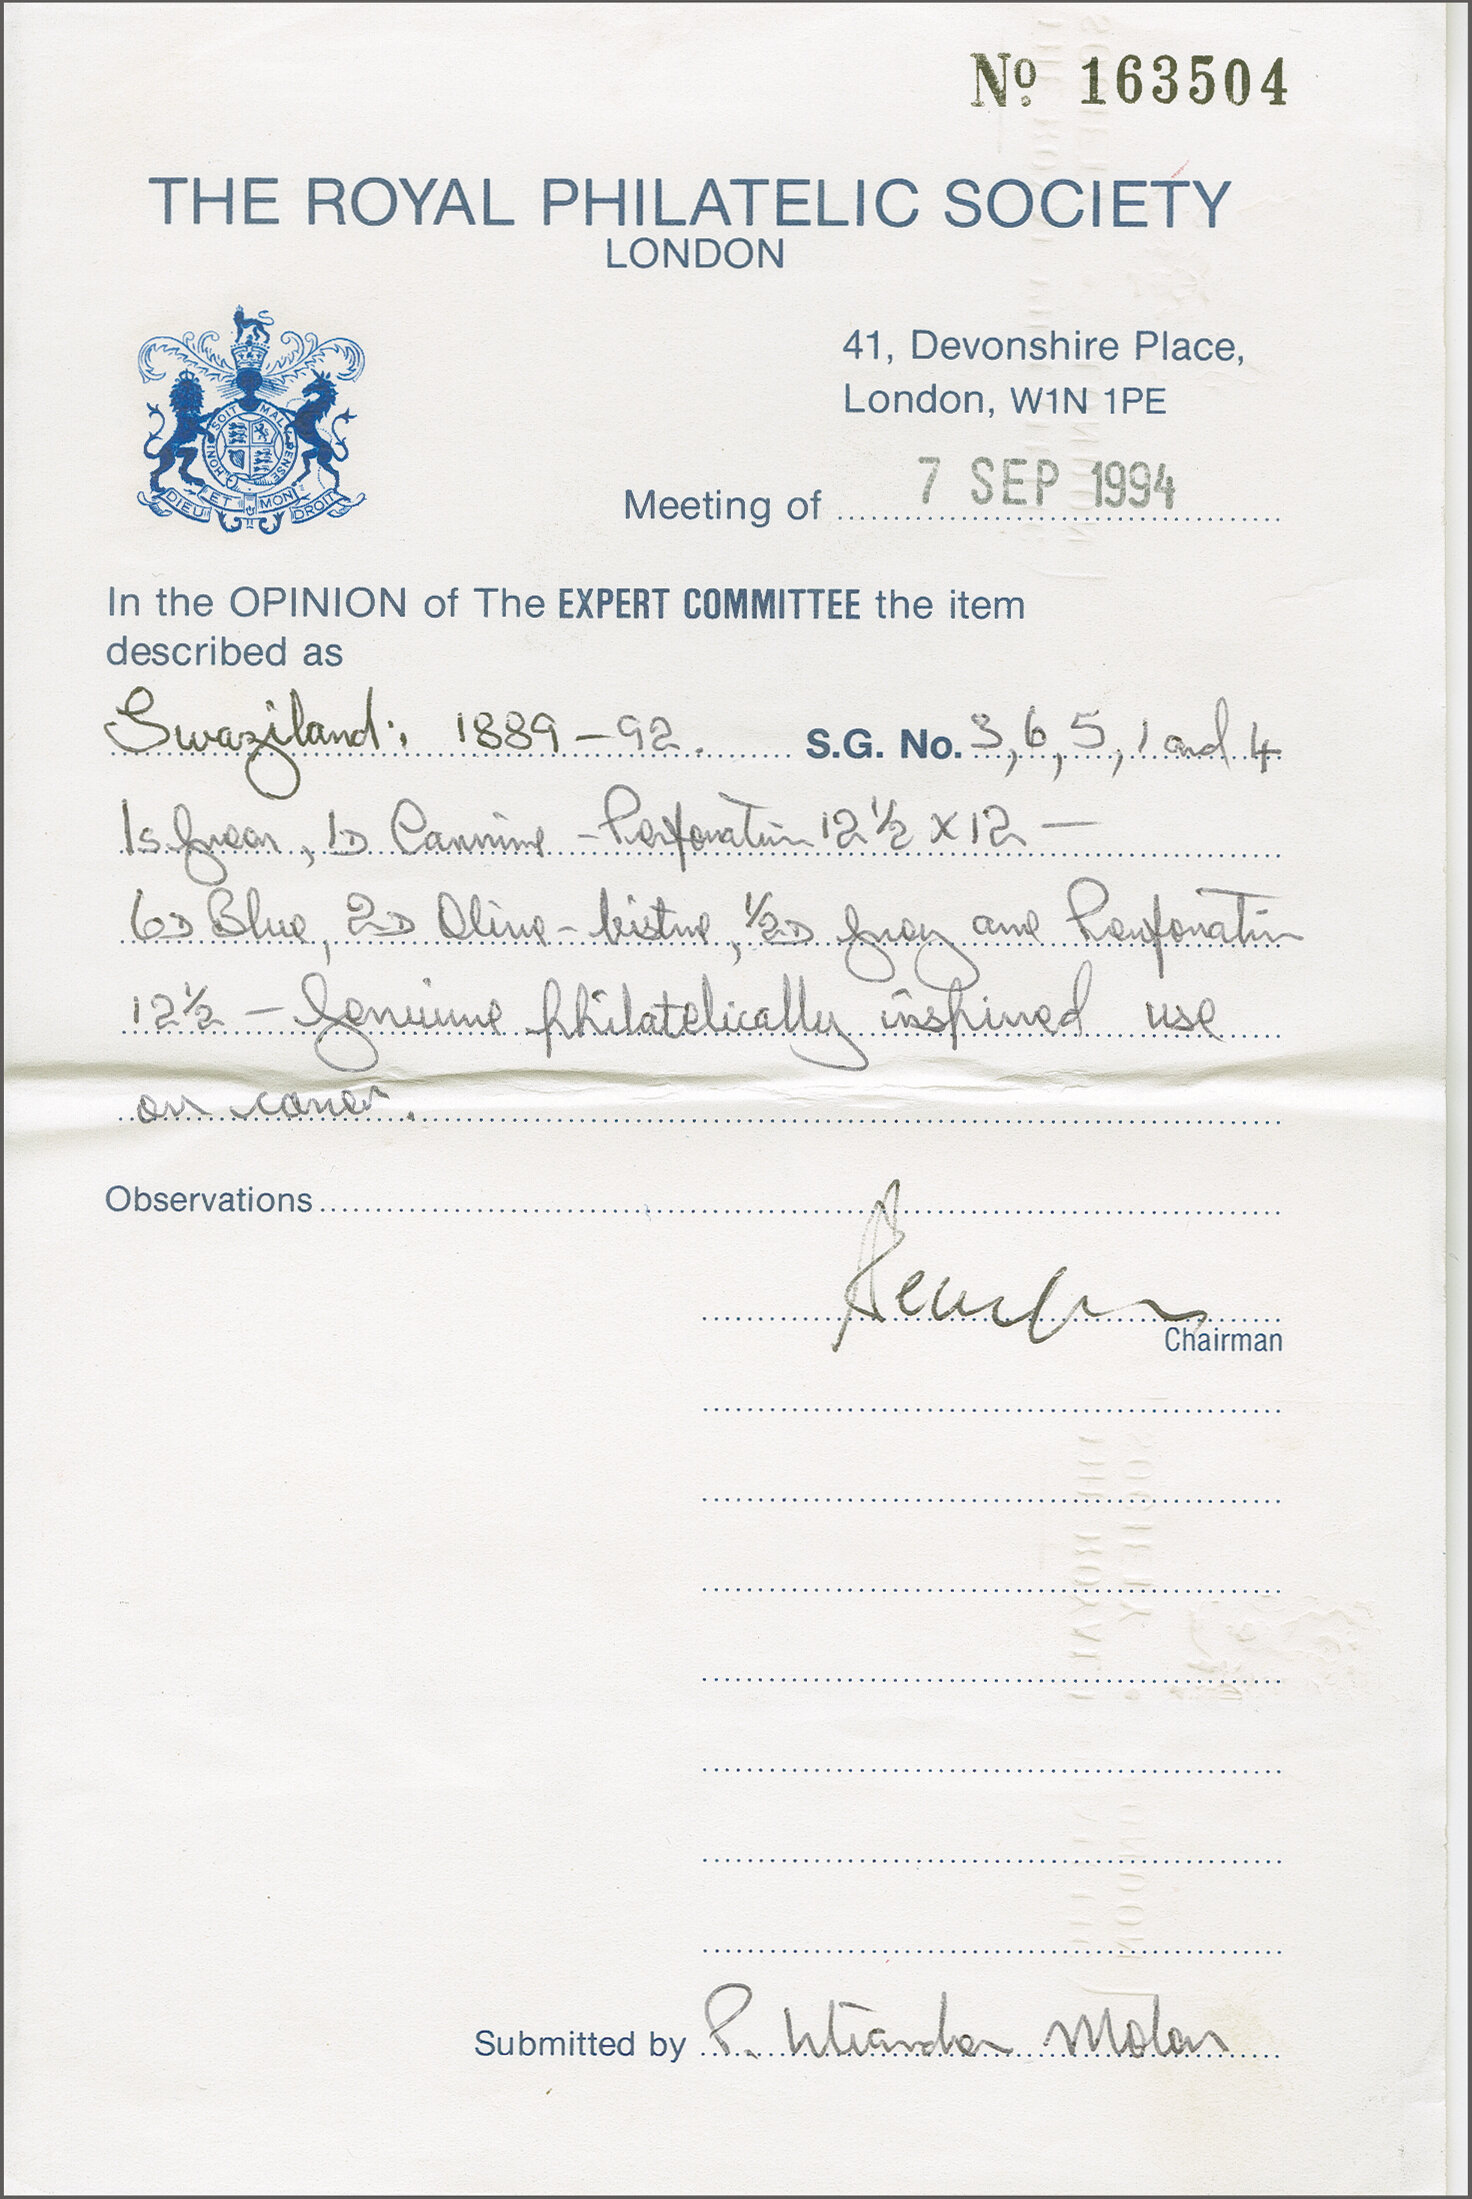 No 163504
THE ROYAL PHILATELIC SOCIETY
LONDON
41, Devonshire Place,
London, W1N 1PE
HONI SOIT MAL Y PENSE
DIEU ET MON DROIT
Meeting of 7 SEP 1994
In the OPINION of The EXPERT COMMITTEE the item
described as
Swaziland: 1889-92. S.G. No. 3, 6, 5, 1 and 4
1s Green, 1D Carmine - Perforation 12½ x 12 —
6D Blue, 2D Olive-bistre, ½D Grey and Perforation
12½ - Genuine philatelically inspired use
on cover.
Observations
Chairman
Submitted by P.